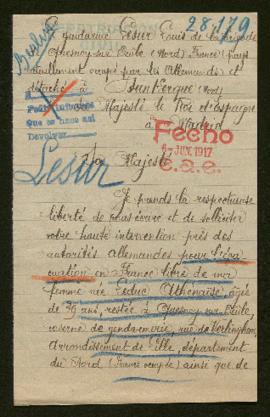 28.179
Berlin
gendarme Lesur Louis de la brigade
Quesnoy sur Deûle (Nord) France (pays
actuellement occupé par les Allemands) et
détaché à Dunkerque (Nord)
Sa Majesté le Roi d'Espagne
à Madrid
Fecho
JUN. 1917
Lesur
Majesté
Je prends la respectueuse
liberté de vous écrire et de solliciter
votre haute intervention près des
autorités allemandes pour l'éva-
cuation en France libre de ma
femme née Leduc Athénaïse, âgée
de 36 ans, restée à Quesnoy sur Deûle,
caserne de gendarmerie, rue de Verlinghem,
Arrondissement de Lille, département
du Nord (France occupée) ainsi que de